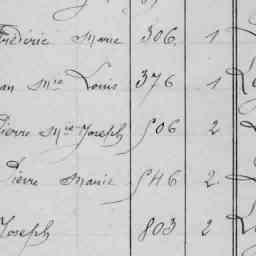 Frédéric Marie 306 1
an Mie Louis 376 1
Pierre Mie Joseph 506 2
Pierre Marie 546 2
Joseph 803 2